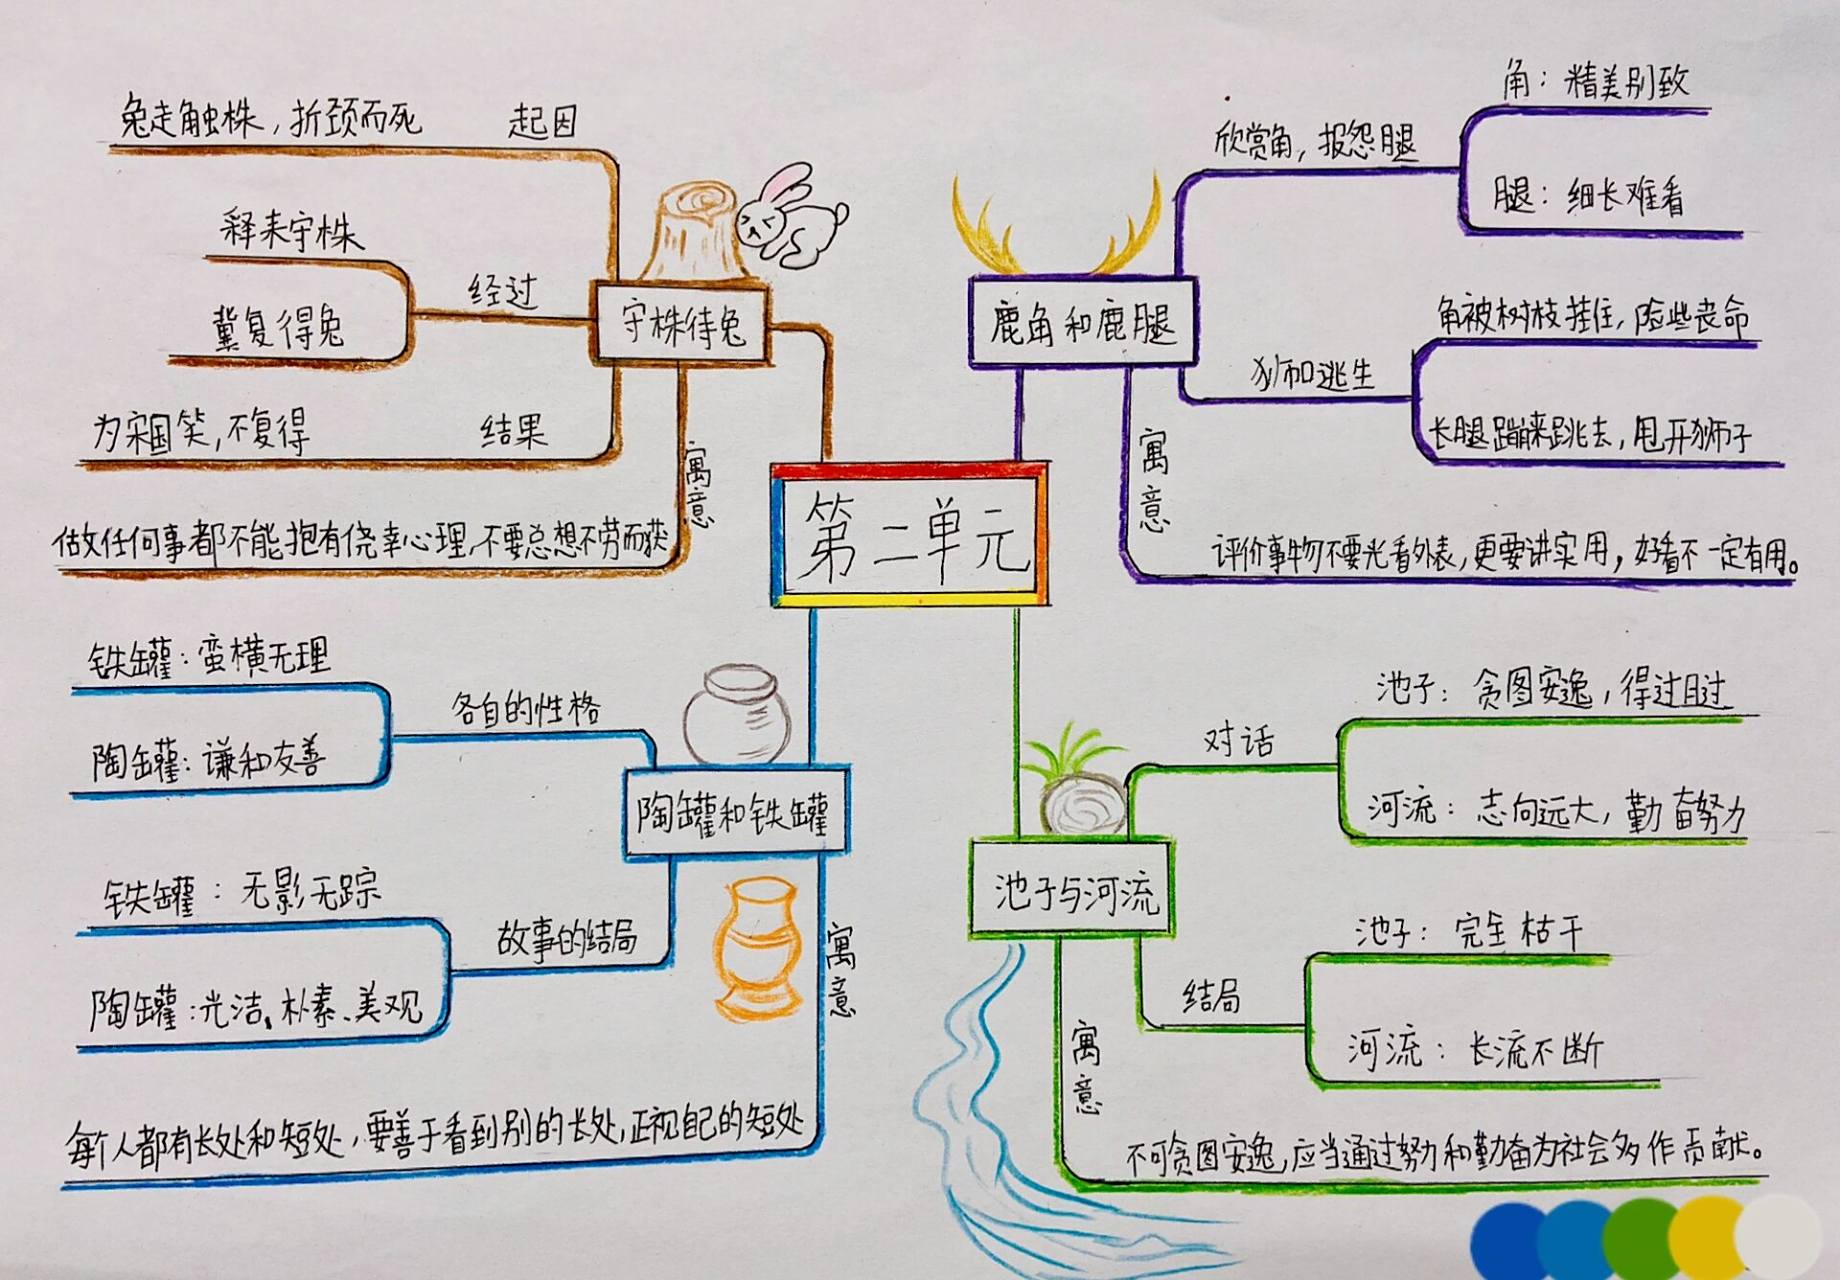 第二单元
守株待兔
兔走触株，折颈而死
起因
经过
释耒守株
冀复得兔
为宋国笑，不复得
结果
寓意
做任何事都不能抱有侥幸心理，不要总想不劳而获
鹿角和鹿腿
欣赏角，报怨腿
角：精美别致
腿：细长难看
狮口逃生
角被树枝挂住，险些丧命
长腿蹦来跳去，甩开狮子
寓意
评价事物不要光看外表，更要讲实用，好看不一定有用。
陶罐和铁罐
各自的性格
铁罐：蛮横无理
陶罐：谦和友善
故事的结局
铁罐：无影无踪
陶罐：光洁、朴素、美观
寓意
每个人都有长处和短处，要善于看到别的长处，正视自己的短处
池子与河流
对话
池子：贪图安逸，得过且过
河流：志向远大，勤奋努力
结局
池子：完全枯干
河流：长流不断
寓意
不可贪图安逸，应当通过努力和勤奋为社会多作贡献。